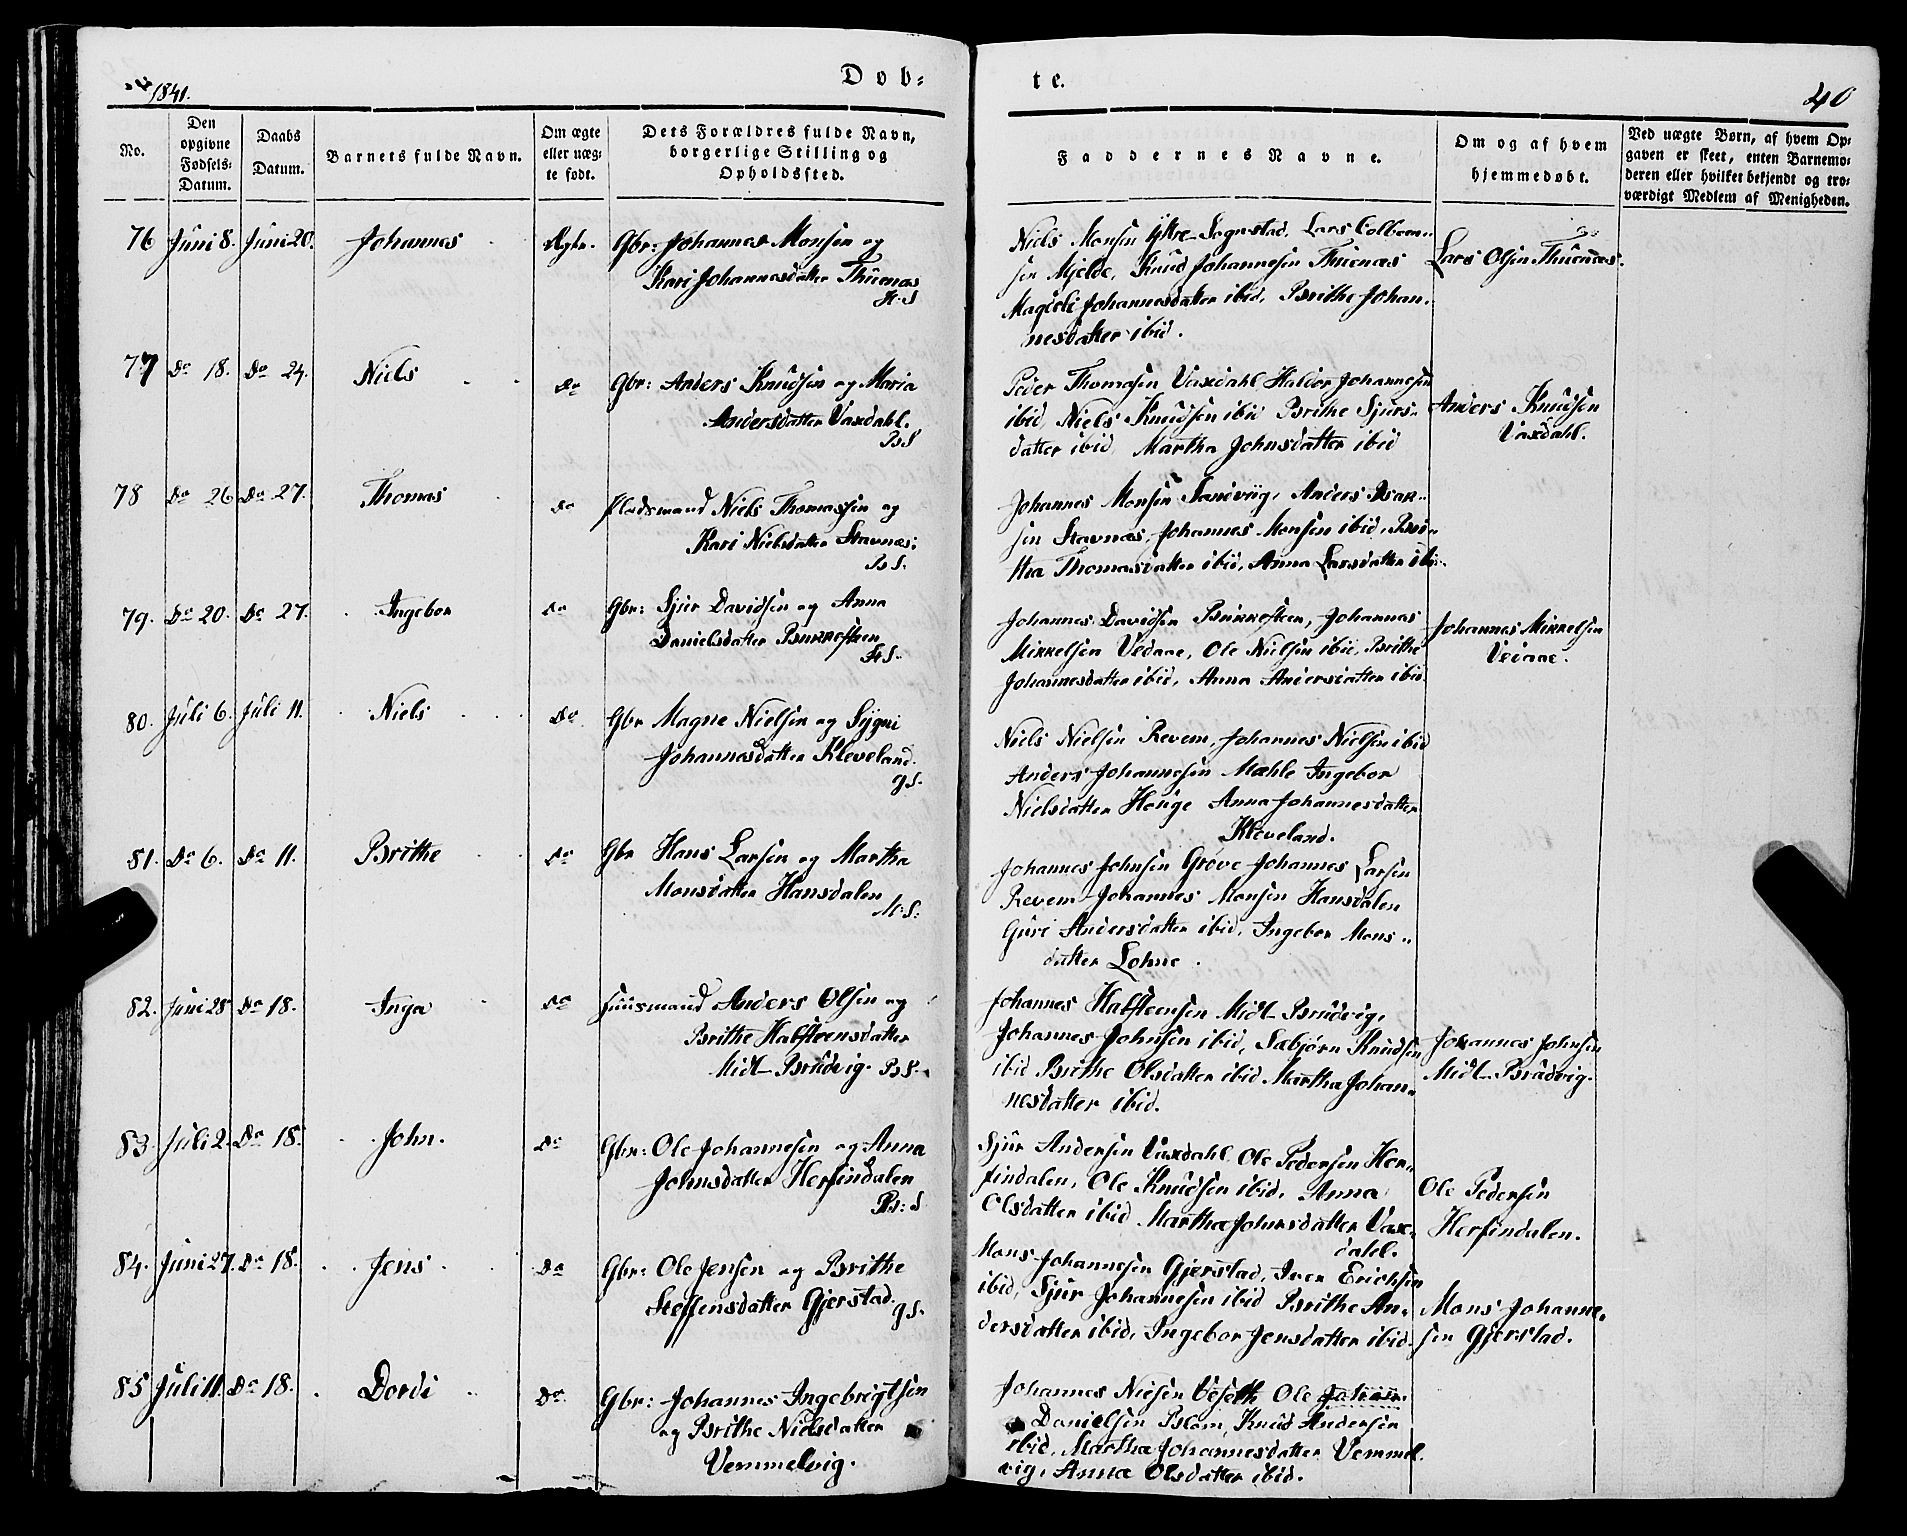 1841.
Døb-
te.
40
No.
Den opgivne Fødsels-Datum.
Daabs Datum.
Barnets fulde Navn.
Om ægte eller uæg-te født.
Dets Forældres fulde Navn, borgerlige Stilling og Opholdssted.
Faddernes Navne.
Om og af hvem hjemmedøbt.
Ved uægte Børn, af hvem Op-gaven er skeet, enten Barnemo-deren eller hvilket bekjendt og tro-værdigt Medlem af Menigheden.
76 Juni 8. Juni 20. Johannes Ægte. Gbr: Johannes Monsen og
Kari Johannesdatter Thuenæs
H.S
Niels Monsen Ytre Sognstad, Lars Colbeen-
sen Mjelde, Knud Johannesen Thuenæs
Magdeli Johannesdatter ibid, Brithe Johan-
nesdatter ibid.
Lars Olsen Thuenæs.
77 Do 18. Do 24. Niels Do Gbr: Anders Knudsen og Maria
Andersdatter Vaxdahl.
B.S
Peder Thomasen Vaxdahl, Haldor Johannesen
ibid, Niels Knudsen ibid Brithe Sjurs-
datter ibid Martha Johnsdatter ibid
Anders Knudsen
Vaxdahl.
78 Do 26 Do 27. Thomas Do Pladsmand Niels Thomassen og
Kari Nielsdatter Stavnæs;
B.S.
Johannes Monsen Sandviig, Anders Isak-
sen Stavnæs, Johannes Monsen ibid, Bri-
tha Thomasdatter ibid, Anna Larsdatter ibi-
79. Do 20. Do 27. Ingebor Do Gbr: Sjur Davidsen og Anna
Danielsdatter Bukkesteen
H.S.
Johannes Davidsen Bukkesteen, Johannes
Mikkelsen Vedaae, Ole Nielsen ibid, Brithe
Johannesdatter ibid, Anna Andersdatter ibid.
Johannes Mikkelsen
Vedaae.
80. Juli 6. Juli 11. Niels Do Gbr Magne Nielsen og Sygni
Johannesdatter Kleveland.
g.S.
Niels Nielsen Revem, Johannes Nielsen ibid
Anders Johannesen Mæhle Ingebor
Nielsdatter Houge Anna Johannesdatter
Kleveland.
81. Do 6. Do 11. Brithe Do Gbr Hans Larsen og Martha
Monsdatter Hansdalen
M.S.
Johannes Johnsen Grøve Johannes Larsen
Revem Johannes Monsen Hansdalen
Guri Andersdatter ibid, Ingebor Mons-
datter Lohne.
82. Juni 28 Do 18. Inga Do Huusmand Anders Olsen og
Brithe Halfsteensdatter
Midt Brudvig. B.S.
Johannes Halfsteensen Midt Brudvig,
Johannes Johnsen ibid, Sæbjørn Knudsen
ibid Brithe Olsdatter ibid Martha Johan-
nesdatter ibid.
Johannes Johnsen
Midt Brudvig.
83. Juli 2. Do 18. John. Do Gbr: Ole Johannesen og Anna
Johnsdatter Herfindalen
B:S
Sjur Andersen Vaxdahl Ole Pedersen Her-
findalen, Ole Knudsen ibid, Anna
Olsdatter ibid Martha Johnsdatter Vax-
dahl.
Ole Pedersen
Herfindalen.
84. Juni 27. Do 18. Jens Do Gbr: Ole Jensen og Brithe
Steffensdatter Gjerstad.
g.S.
Mons Johannesen Gjerstad, Iver Erichsen
ibid, Sjur Johannesen ibid Brithe An-
dersdatter ibid, Ingebor Jensdatter ibid.
Mons Johanne-
sen Gjerstad.
85 Juli 11. Do 18. Dordi Do. Gbr: Johannes Ingebrigtsen
og Brithe Nielsdatter
Vemmelvig.
Johannes Nielsen Veseth Ole
Danielsen Blom, Knud Andersen
ibid, Martha Johannesdatter Vemmel
vig, Anna Olsdatter ibid.